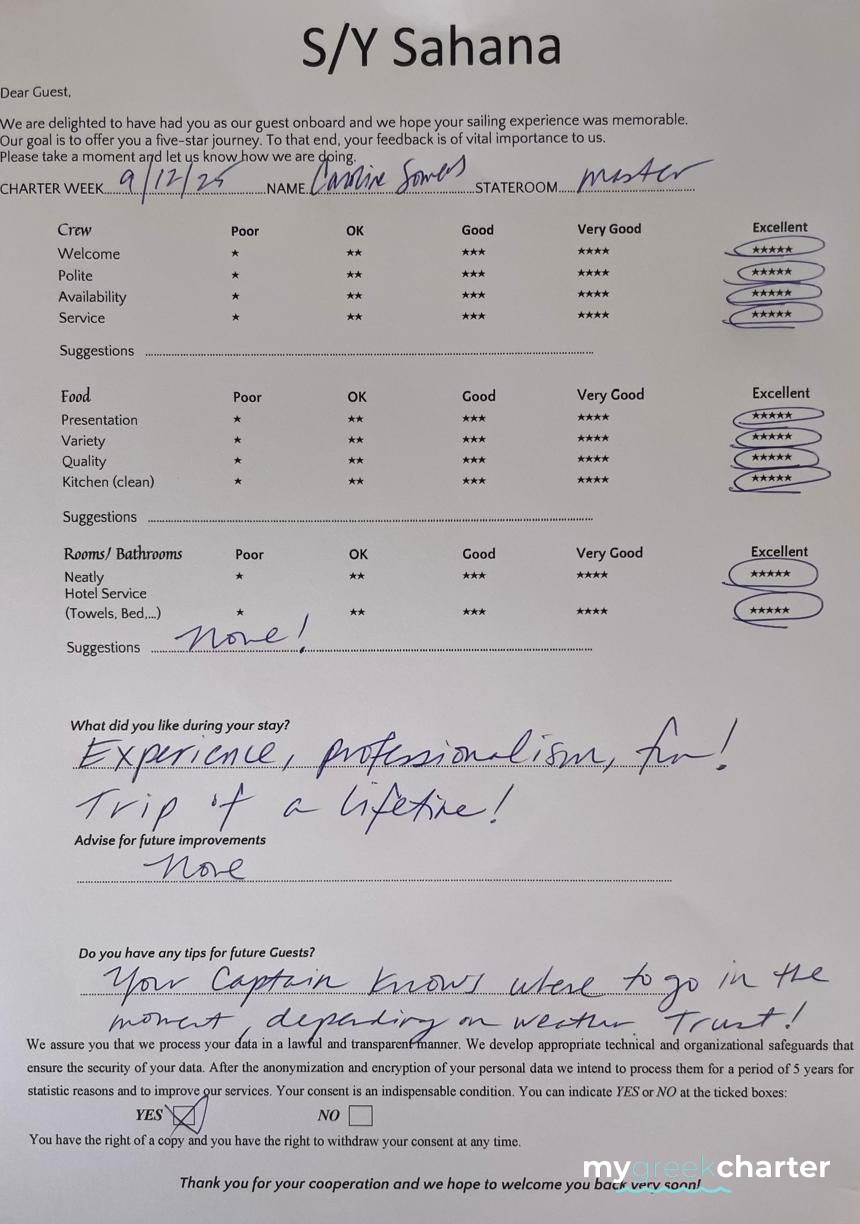 S/Y Sahana
Dear Guest,
We are delighted to have had you as our guest onboard and we hope your sailing experience was memorable.
Our goal is to offer you a five-star journey. To that end, your feedback is of vital importance to us.
Please take a moment and let us know how we are doing.
CHARTER WEEK 9/12/25 NAME Caroline Somers STATEROOM master
Crew Poor OK Good Very Good Excellent
Welcome ★ ★★ ★★★ ★★★★ ★★★★★
Polite ★ ★★ ★★★ ★★★★ ★★★★★
Availability ★ ★★ ★★★ ★★★★ ★★★★★
Service ★ ★★ ★★★ ★★★★ ★★★★★
Suggestions
Food Poor OK Good Very Good Excellent
Presentation ★ ★★ ★★★ ★★★★ ★★★★★
Variety ★ ★★ ★★★ ★★★★ ★★★★★
Quality ★ ★★ ★★★ ★★★★ ★★★★★
Kitchen (clean) ★ ★★ ★★★ ★★★★ ★★★★★
Suggestions
Rooms/ Bathrooms Poor OK Good Very Good Excellent
Neatly ★ ★★ ★★★ ★★★★ ★★★★★
Hotel Service
(Towels, Bed,...) ★ ★★ ★★★ ★★★★ ★★★★★
Suggestions None!
What did you like during your stay?
Experience, professionalism, fun!
Trip of a lifetime!
Advise for future improvements
None
Do you have any tips for future Guests?
Your Captain knows where to go in the
moment, depending on weather. Trust!
We assure you that we process your data in a lawful and transparent manner. We develop appropriate technical and organizational safeguards that
ensure the security of your data. After the anonymization and encryption of your personal data we intend to process them for a period of 5 years for
statistic reasons and to improve our services. Your consent is an indispensable condition. You can indicate YES or NO at the ticked boxes:
YES NO
You have the right of a copy and you have the right to withdraw your consent at any time.
mygreekcharter
Thank you for your cooperation and we hope to welcome you back very soon!